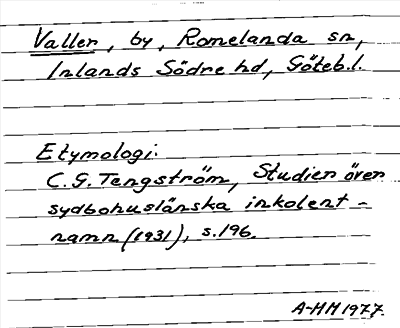 Valler, by, Romelanda sn,
Inlands Södre hd, Göteb.l.
Etymologi:
C.G. Tengström, Studier över
sydbohuslänska inkolent-
namn (1931), s.196.
A-MH 1977.